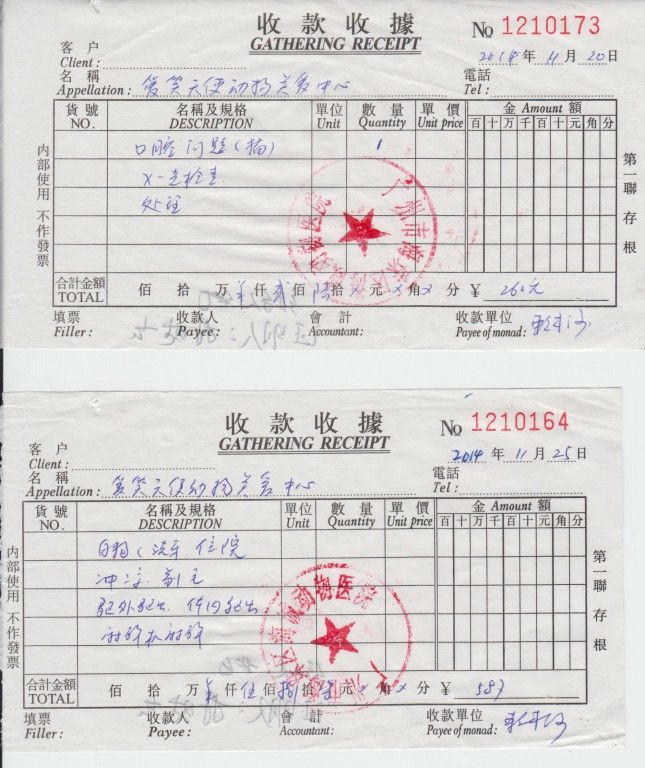 收款收據
GATHERING RECEIPT
No 1210173
客户
Client :
2014 年 11 月 20 日
名稱
Appellation : 笑天使动物关爱中心
電話
Tel :
貨號 名稱及規格 單位 數量 單價 金 Amount 額
NO. DESCRIPTION Unit Quantity Unit price 百 十 万 千 百 十 元 角 分
口腔问题(猫) 1
X-光检查
处理
合計金額 佰 拾 万 仟 贰 佰 陆 拾 元 角 分 ¥ 260元
TOTAL
填票 收款人 會計 收款單位
Filler : Payee : Accountant: Payee of monad :
内部使用 不作發票
第一聯 存根
广州市海珠区 动物医院
收款收據
GATHERING RECEIPT
No 1210164
客户
Client :
2014 年 11 月 25 日
名稱
Appellation : 笑天使动物关爱中心
電話
Tel :
貨號 名稱及規格 單位 數量 單價 金 Amount 額
NO. DESCRIPTION Unit Quantity Unit price 百 十 万 千 百 十 元 角 分
白猫 住院
驱外驱虫 体内驱虫
合計金額 佰 拾 万 仟 伍 佰 捌 拾 元 角 分 ¥ 583
TOTAL
填票 收款人 會計 收款單位
Filler : Payee : Accountant: Payee of monad :
内部使用 不作發票
第一聯 存根
动物医院